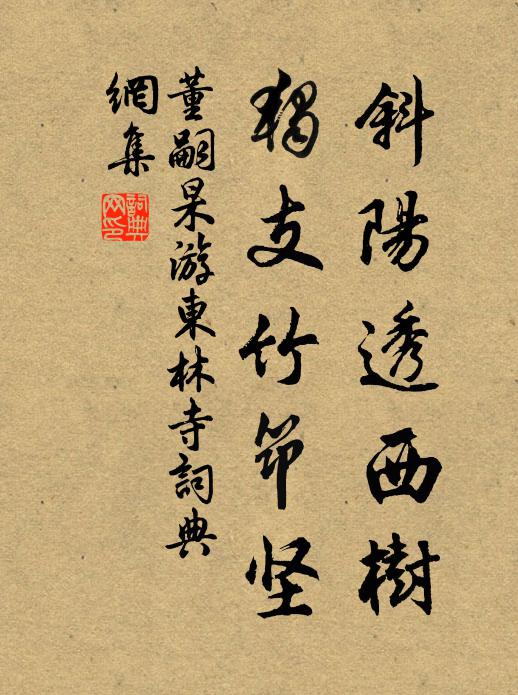 斜陽透西樹
獨支竹筇坚
董嗣杲游東林寺詞典
網集
詞典
网印